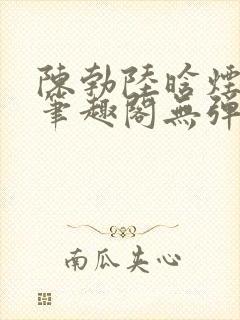 陳勃陸晗煙
筆趣閣無彈
南瓜夹心